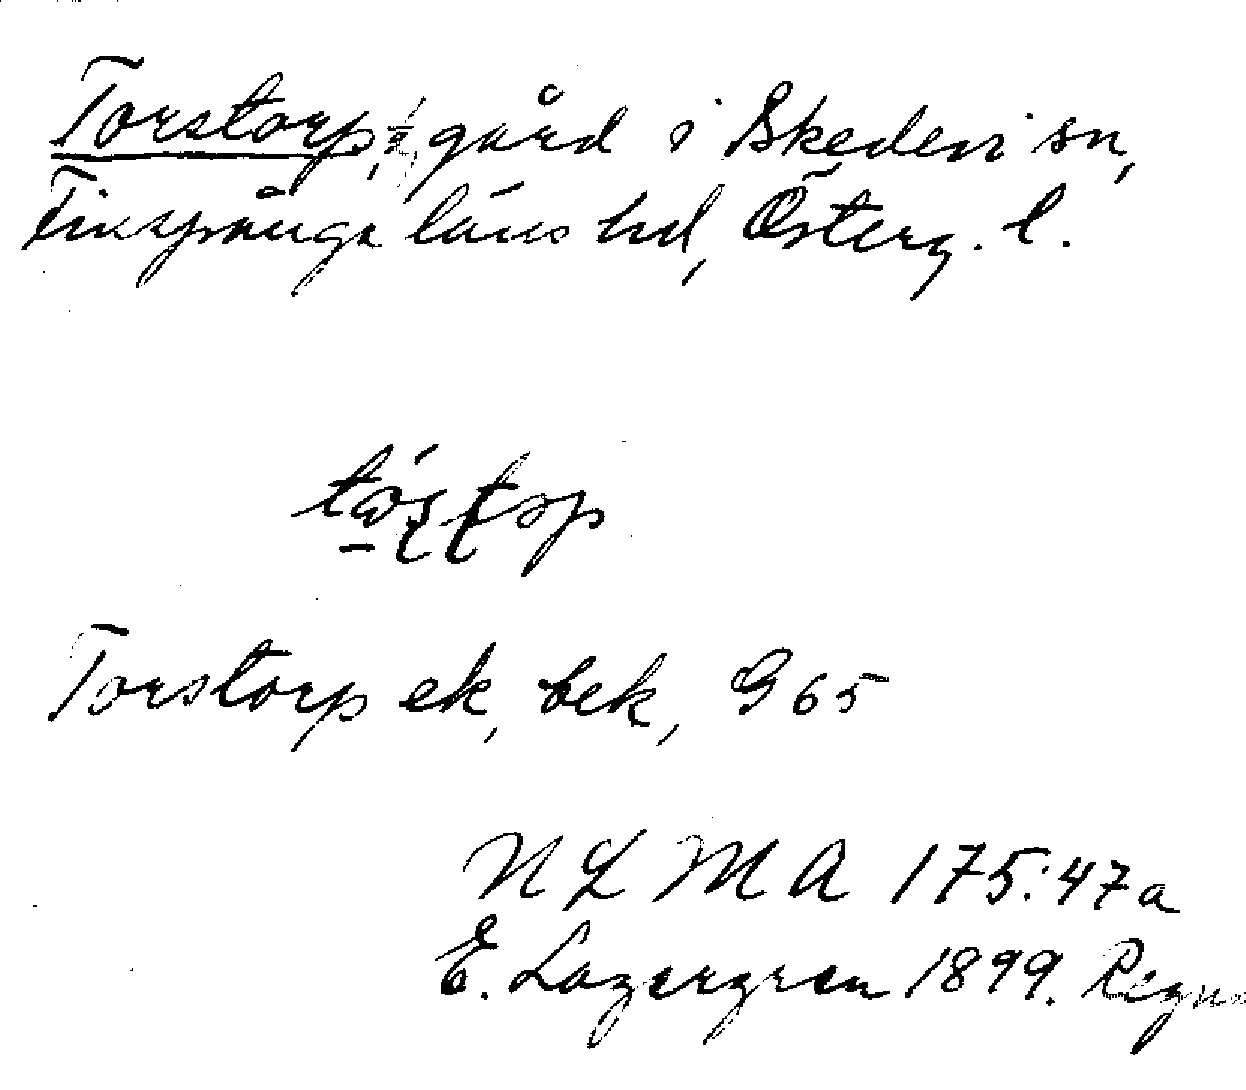 Torstorp, gård i Skedevi sn,
Finspånga läns hd, Österg. l.
Torstorp ek, bek, G 65
N L M A 175:47a
E. Lagergren 1899.